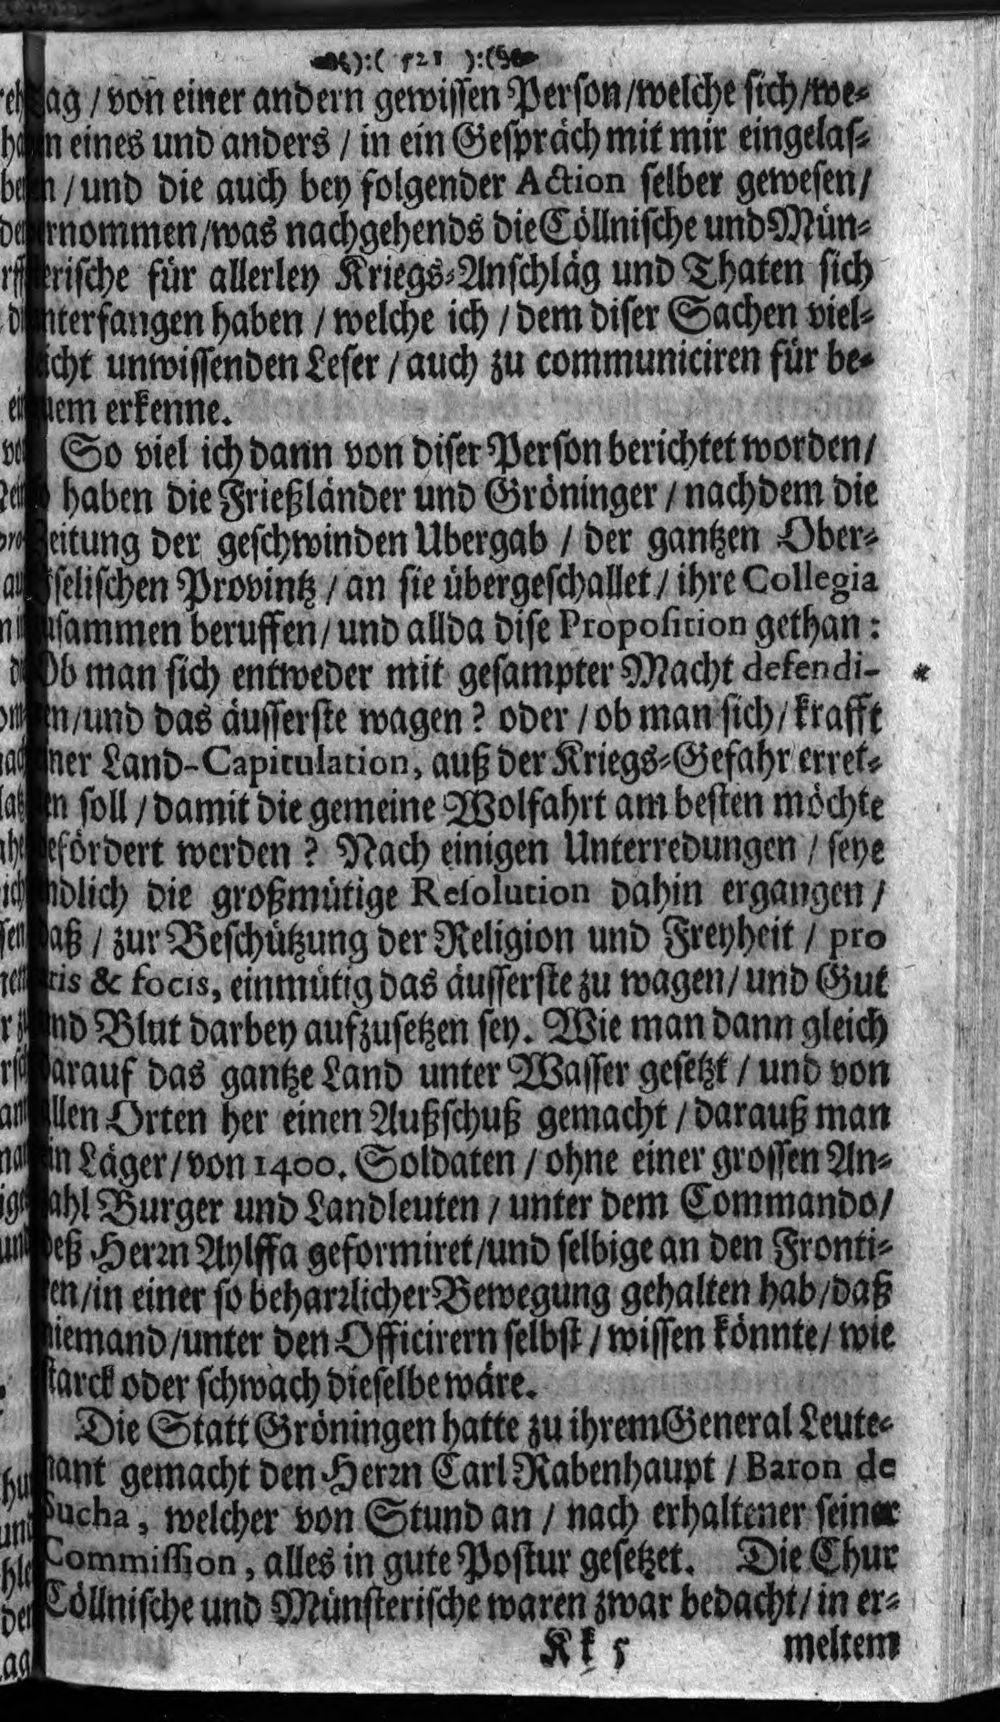 ):( 521 ):(
ag / von einer andern gewissen Person / welche sich / we-
n eines und anders / in ein Gespräch mit mir eingelas-
n / und die auch bey folgender Action selber gewesen /
rnommen / was nachgehends die Cöllnische und Mün-
erische für allerley Kriegs-Anschläg und Thaten sich
nterfangen haben / welche ich / dem diser Sachen viel-
icht unwissenden Leser / auch zu communiciren für be-
uem erkenne.
So viel ich dann von diser Person berichtet worden /
haben die Frießländer und Gröninger / nachdem die
eitung der geschwinden Ubergab / der gantzen Ober-
selischen Provintz / an sie übergeschallet / ihre Collegia
usammen beruffen / und allda dise Proposition gethan :
Ob man sich entweder mit gesampter Macht defendi- *
en / und das äusserste wagen ? oder / ob man sich / krafft
ner Land-Capitulation, auß der Kriegs-Gefahr erret-
en soll / damit die gemeine Wolfahrt am besten möchte
efördert werden ? Nach einigen Unterredungen / seye
ndlich die großmütige Resolution dahin ergangen /
aß / zur Beschützung der Religion und Freyheit / pro
ris & focis, einmütig das äusserste zu wagen / und Gut
nd Blut darbey aufzusetzen sey. Wie man dann gleich
darauf das gantze Land unter Wasser gesetzt / und von
llen Orten her einen Außschuß gemacht / darauß man
in Läger / von 1400. Soldaten / ohne einer grossen An-
ahl Burger und Landleuten / unter dem Commando /
deß Herrn Aylffa geformiret / und selbige an den Fronti-
en / in einer so beharrlicher Bewegung gehalten hab / daß
niemand / unter den Officirern selbst / wissen könnte / wie
starck oder schwach dieselbe wäre.
Die Statt Gröningen hatte zu ihrem General Leute-
nant gemacht den Herrn Carl Rabenhaupt / Baron de
Sucha, welcher von Stund an / nach erhaltener seiner
Commission, alles in gute Postur gesetzet. Die Chur
Cöllnische und Münsterische waren zwar bedacht / in er-
Kk 5 meltem